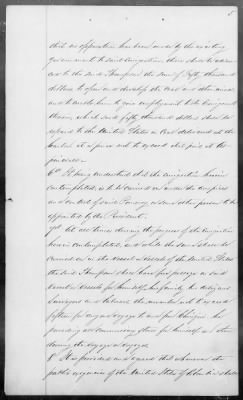 5
that an opposition has been made by the existing
government to said Emigration, there shall be advan-
ced to the said Thompson the sum of fifty thousand
dollars to open and develop the coal and other mines
and to enable him to give employment to the Emigrants
thence, which said fifty thousand dollars shall be
repaid to the United States in Coal delivered at the
at a price not to exceed that paid at
6th It being understood that the emigration herein
contemplated, is to be carried on under the auspices
and control of said Pomeroy or some other person to be
appointed by the President.
7th At all times during the progress of the Emigration
herein contemplated, and while the same shall be
carried on in the vessel or vessels of the United States
the said Thompson shall have free passage in said
vessel or vessels for himself, his family, his delegates
Surveyors and laborers the number not to exceed
fifteen for any one voyage to and from Chiriqui, he
providing all summary stores for himself and them
during the voyage or voyages.
8 It is provided and agreed that whenever the
public exigencies of the United States of Columbia shall